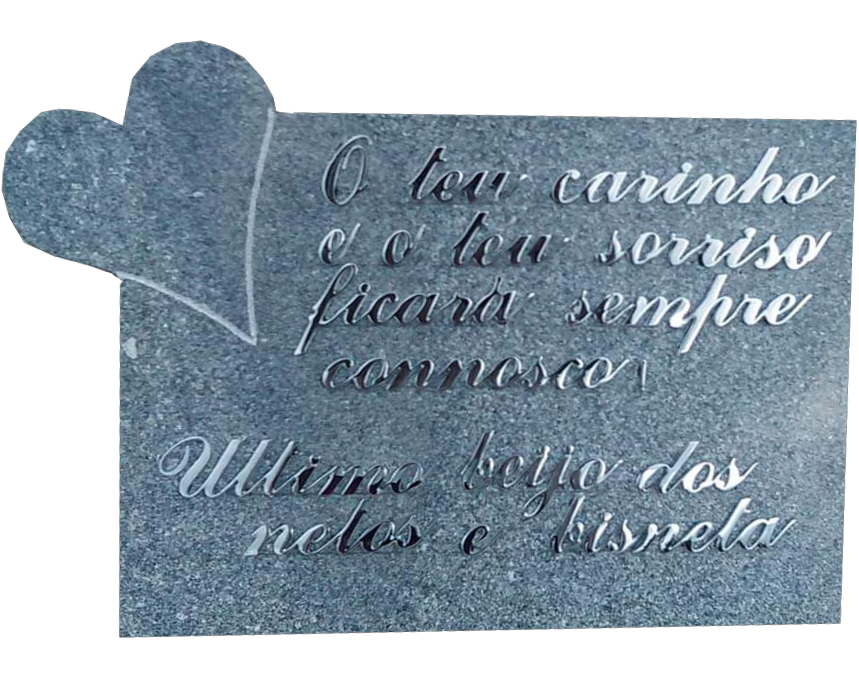 O teu carinho
e o teu sorriso
ficará sempre
connosco!
Ultimo beijo dos
netos e bisneta